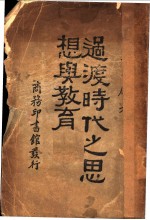 過渡時代之思
想與教育
商務印書館發行